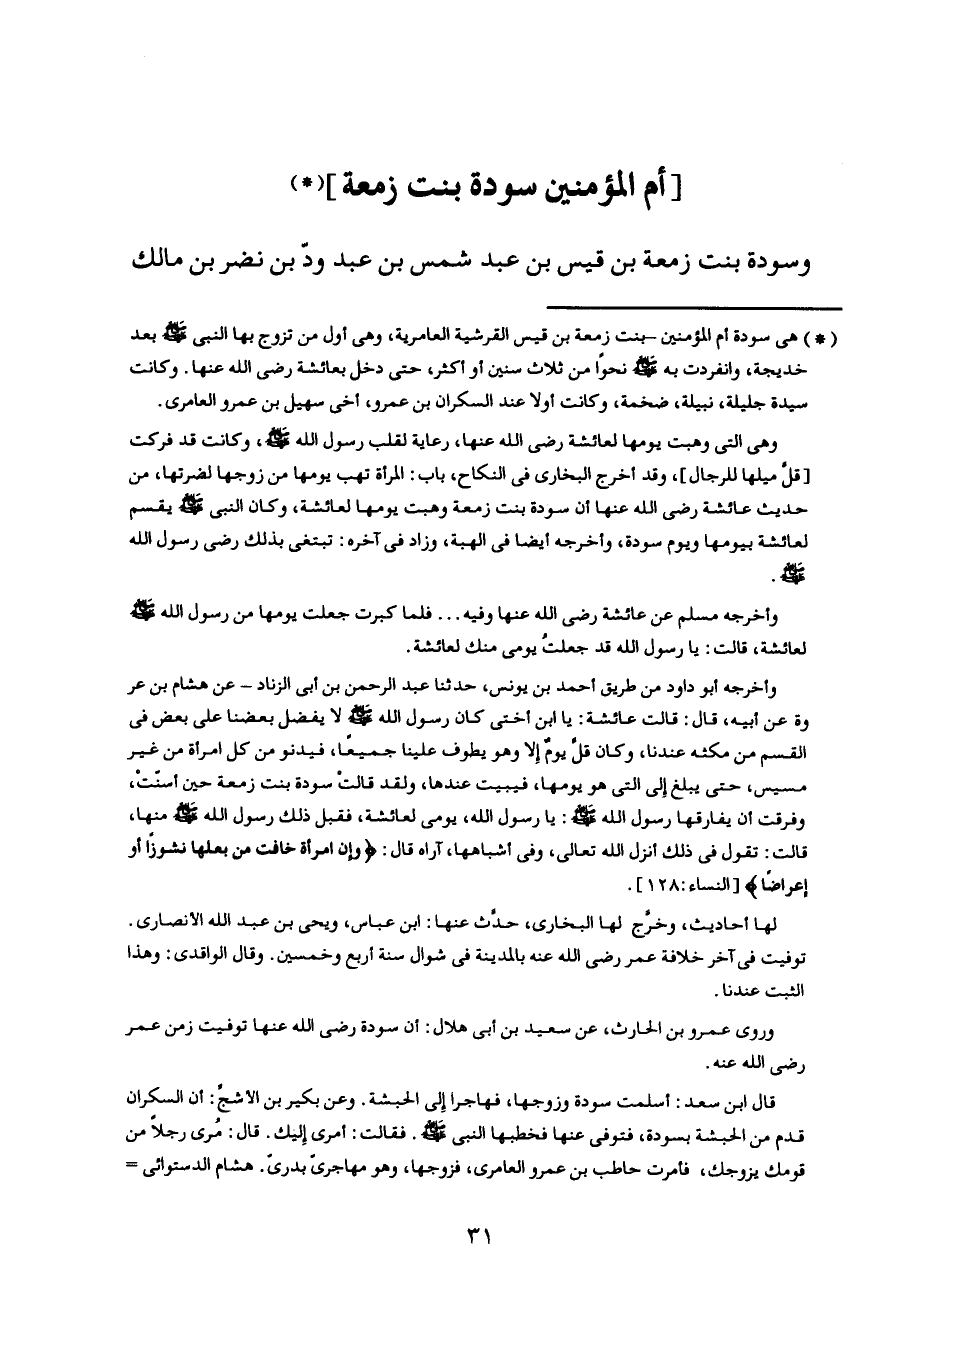 [أم المؤمنين سودة بنت زمعة](*)
وسودة بنت زمعة بن قيس بن عبد شمس بن عبد ودّ بن نضر بن مالك
(*) هى سودة أم المؤمنين -بنت زمعة بن قيس القرشية العامرية، وهى أول من تزوج بها النبى ﷺ بعد
خديجة، وانفردت به ﷺ نحواً من ثلاث سنين أو أكثر، حتى دخل بعائشة رضى الله عنها. وكانت
سيدة جليلة، نبيلة، ضخمة، وكانت أولا عند السكران بن عمرو، أخى سهيل بن عمرو العامرى.
وهى التى وهبت يومها لعائشة رضى الله عنها، رعاية لقلب رسول الله ﷺ، وكانت قد فركت
[قلَّ ميلها للرجال]، وقد أخرج البخارى فى النكاح، باب: المرأة تهب يومها من زوجها لضرتها، من
حديث عائشة رضى الله عنها أن سودة بنت زمعة وهبت يومها لعائشة، وكان النبى ﷺ يقسم
لعائشة بيومها ويوم سودة، وأخرجه أيضا فى الهبة، وزاد فى آخره: تبتغى بذلك رضى رسول الله
ﷺ.
وأخرجه مسلم عن عائشة رضى الله عنها وفيه... فلما كبرت جعلت يومها من رسول الله ﷺ
لعائشة، قالت: يا رسول الله قد جعلتُ يومى منك لعائشة.
وأخرجه أبو داود من طريق أحمد بن يونس، حدثنا عبد الرحمن بن أبى الزناد - عن هشام بن عر
وة عن أبيه، قال: قالت عائشة: يا ابن أختى كان رسول الله ﷺ لا يفضل بعضنا على بعض فى
القسم من مكثه عندنا، وكان قلَّ يومٌ إلا وهو يطوف علينا جميعًا، فيدنو من كل امرأة من غير
مسيس، حتى يبلغ إلى التى هو يومها، فيبيت عندها، ولقد قالتْ سودة بنت زمعة حين أسنّتْ،
وفرقت أن يفارقها رسول الله ﷺ: يا رسول الله، يومى لعائشة، فقبل ذلك رسول الله ﷺ منها،
قالت: تقول فى ذلك أنزل الله تعالى، وفى أشباهها، آراه قال: ﴿وإن امرأة خافت من بعلها نشوزًا أو
إعراضًا﴾ [النساء:١٢٨].
لها أحاديث، وخرَّج لها البخارى، حدَّث عنها: ابن عباس، ويحى بن عبد الله الانصارى.
توفيت فى آخر خلافة عمر رضى الله عنه بالمدينة فى شوال سنة أربع وخمسين. وقال الواقدى: وهذا
الثبت عندنا.
وروى عمرو بن الحارث، عن سعيد بن أبى هلال: أن سودة رضى الله عنها توفيت زمن عمر
رضى الله عنه.
قال ابن سعد: أسلمت سودة وزوجها، فهاجرا إلى الحبشة. وعن بكير بن الأشجِّ: أن السكران
قدم من الحبشة بسودة، فتوفى عنها فخطبها النبى ﷺ. فقالت: أمرى إليك. قال: مُرى رجلاً من
قومك يزوجك، فأمرت حاطب بن عمرو العامرى، فزوجها، وهو مهاجرىّ بدرىّ. هشام الدستوائى =
٣١